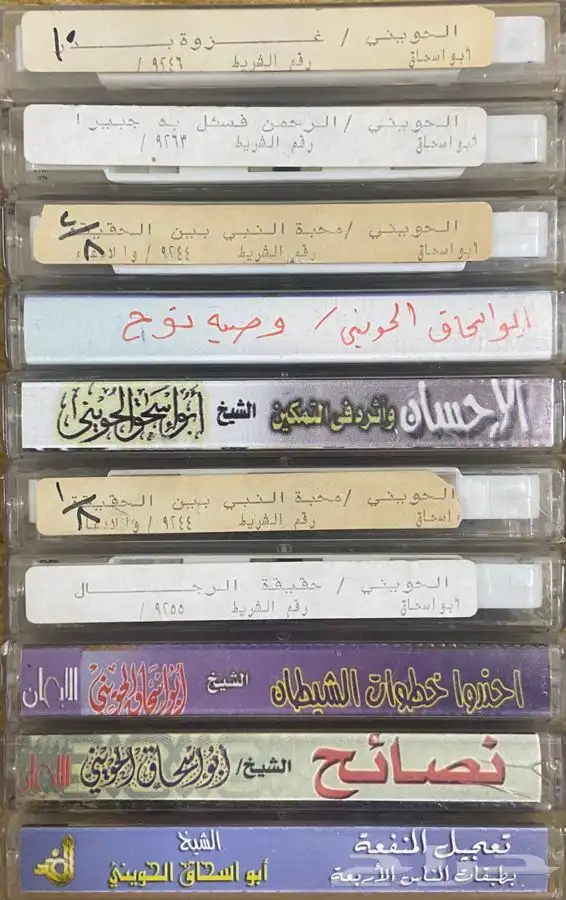 الحويني / غـــزوة بـــدر
أبو اسحاق رقم الشريط ٩٢٤٦ /
الحويني / الرحمن فسئل به خبيرا
أبو اسحاق رقم الشريط ٩٢٦٣ /
الحويني / محبة النبي بين الحقيقة
أبو اسحاق رقم الشريط ٩٢٤٤ / والادعاء
ابو اسحاق الحويني / وصيه نوح
الإحسان وأثره في التمكين الشيخ أبو إسحق الحويني
الحويني / محبة النبي بين الحقيقة
اسحاق رقم الشريط ٩٢٤٤ / والادعاء
الحويني / حقيقة الرجـــال
أبو اسحاق رقم الشريط ٩٢٥٥ /
احذروا خطوات الشيطان الشيخ أبو اسحاق الحويني الإيمان
نصائح الشيخ / أبو اسحاق الحويني الإيمان
تعجيل المنفعة الشيخ
بطبقات الناس الأربعة أبو اسحاق الحويني